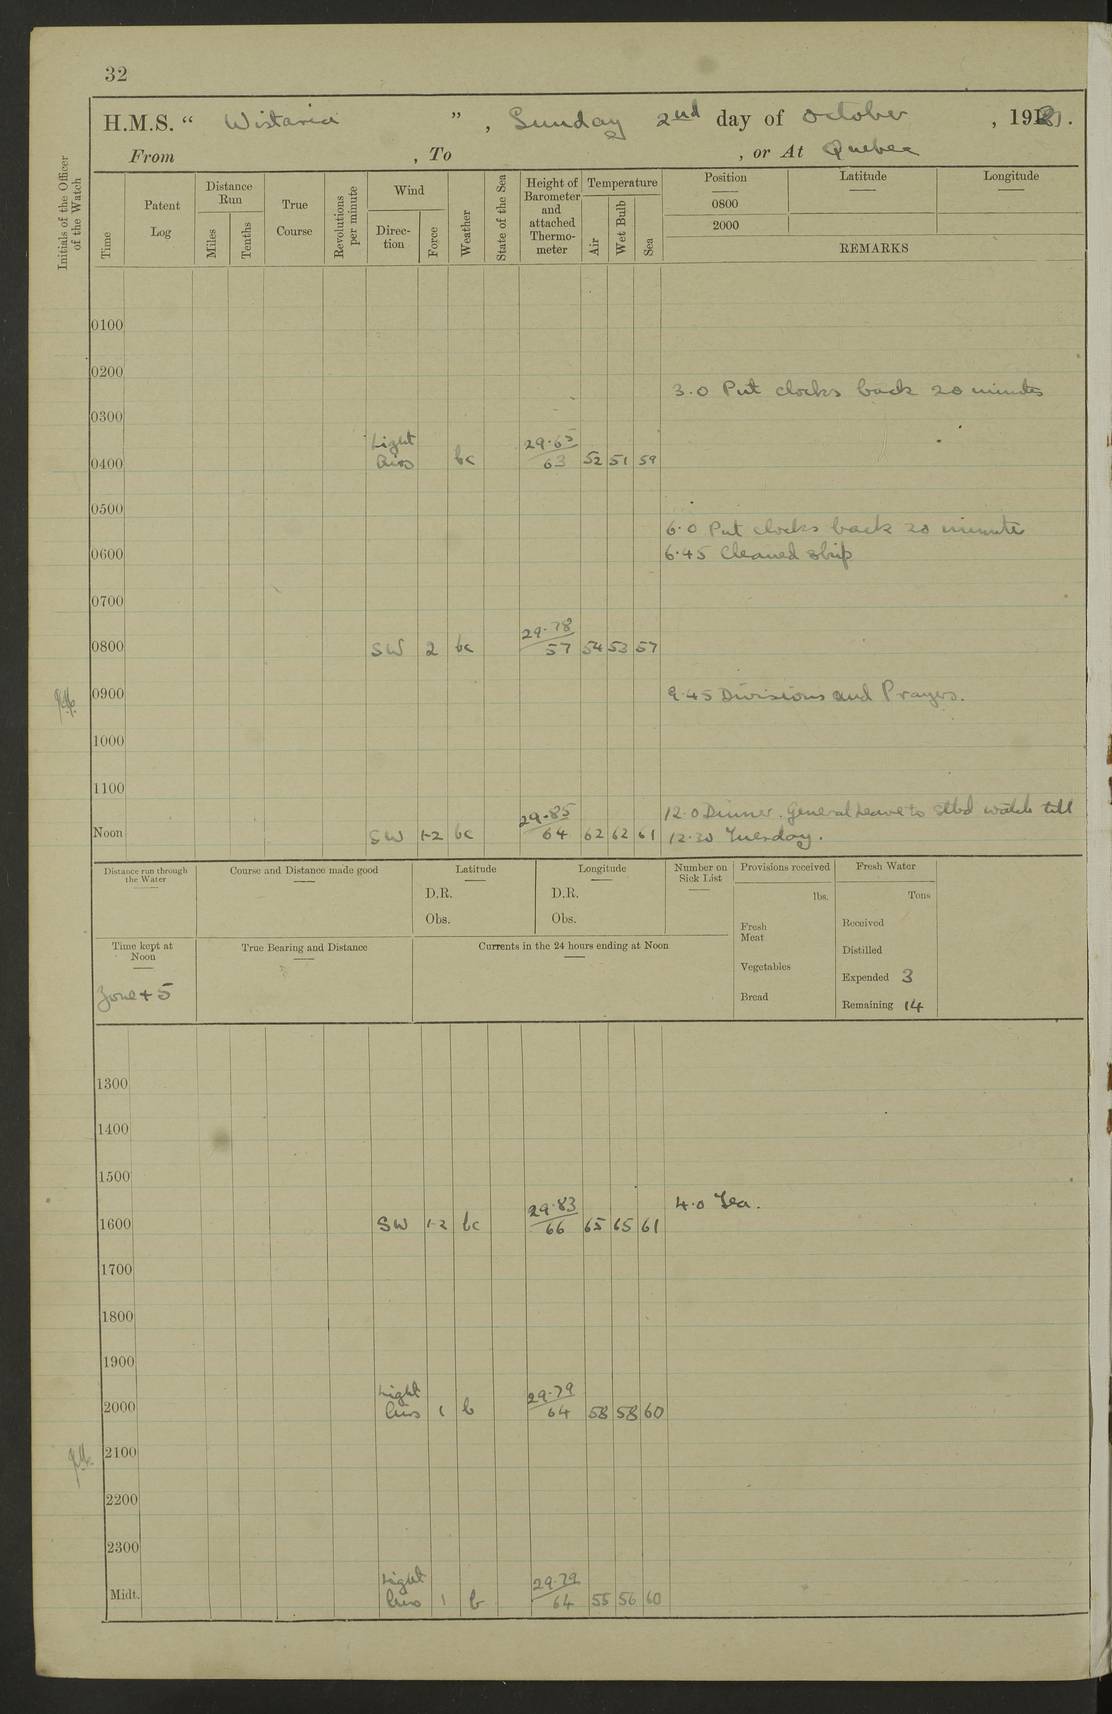 32
H.M.S. “ Wistaria ” , Sunday 2nd day of October , 19
From , To , or At Quebec
Initials of the Officer of the Watch
Time
Patent Log
Distance Run
Miles
Tenths
True Course
Revolutions per minute
Wind
Direc-tion
Force
Weather
State of the Sea
Height of Barometer and attached Thermo-meter
Temperature
Air
Wet Bulb
Sea
Position
0800
2000
Latitude
Longitude
REMARKS
0100
0200
3.0 Put clocks back 20 minutes
0300
0400 Light Airs bc 29.65 63 52 51 59
0500
6.0 Put clocks back 20 minutes
0600
6.45 Cleaned ship
0700
0800 SW 2 bc 29.78 57 54 53 57
0900
9.45 Divisions and Prayers.
1000
1100
12.0 Dinner. General Leave to Stbd watch till
Noon SW 1-2 bc 29.85 64 62 62 61
12.30 Tuesday.
Distance run through the Water
Course and Distance made good
Latitude
D.R.
Obs.
Longitude
D.R.
Obs.
Number on Sick List
Provisions received
lbs.
Fresh Meat
Vegetables
Bread
Fresh Water
Tons
Received
Distilled
Expended 3
Remaining 14
Time kept at Noon
Zone + 5
True Bearing and Distance
Currents in the 24 hours ending at Noon
1300
1400
1500
4.0 Tea.
1600 SW 1-2 bc 29.83 66 65 65 61
1700
1800
1900
2000 Light Airs 1 b 29.79 64 58 58 60
2100
2200
2300
Midt. Light Airs 1 b 29.79 64 55 56 60